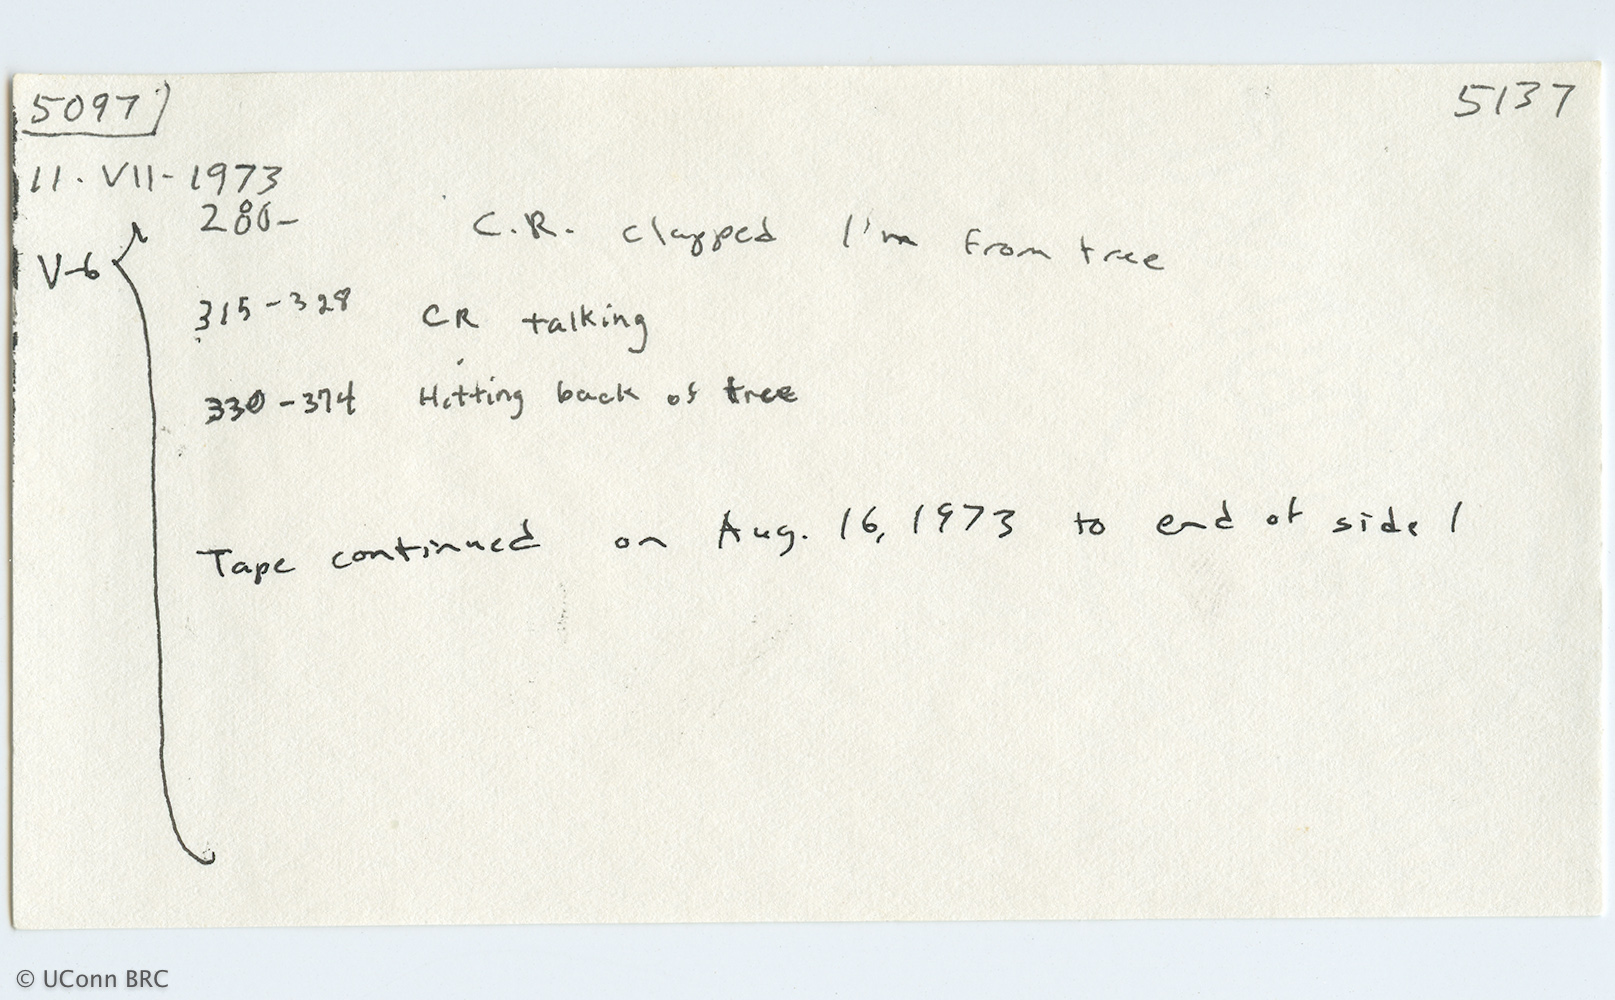 5097) 5137
11. VII- 1973
280- C.R. clapped 1'm from tree
V-6
315-328 CR talking
330-374 Hitting back of tree
Tape continued on Aug. 16, 1973 to end of side 1
© UConn BRC